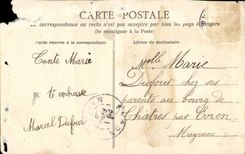 CARTE POSTALE
La correspondance au recto n'est pas acceptée par tous les pays étrangers
(Se renseigner à la Poste)
Carte réservée à la correspondance
Adresse du destinataire
Tante Marie
je t'embrasse
Marcel Dufour
Melle Marie
Dufour chez ses
parents au bourg de
Chatres par Evron
Mayenne